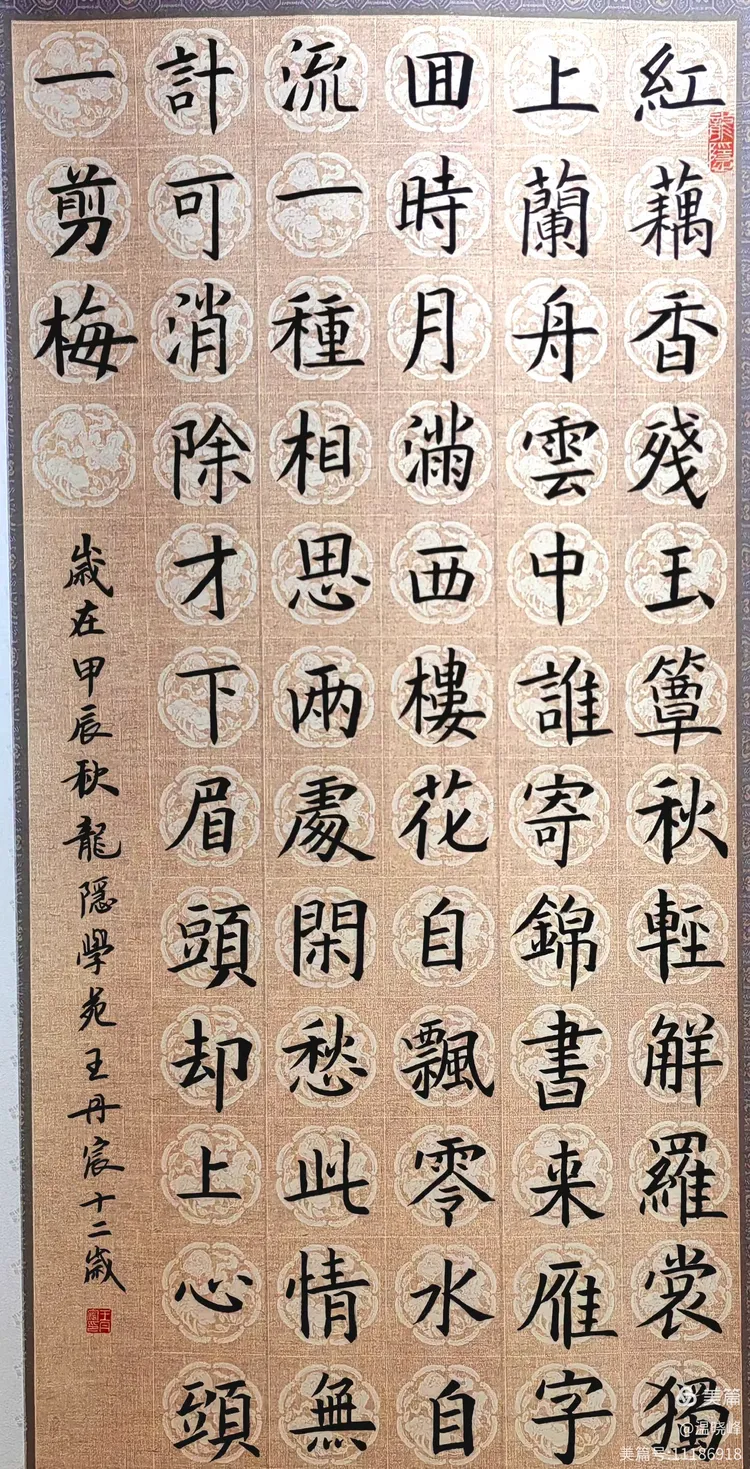 紅藕香殘玉簟秋輕解羅裳獨
上蘭舟雲中誰寄錦書来雁字
囬時月滿西樓花自飄零水自
流一種相思兩處閑愁此情無
計可消除才下眉頭却上心頭
一剪梅
歲在甲辰秋龍隱學苑王丹宸十二歲
龍隱
美篇
@温晓峰
美篇号:11186918